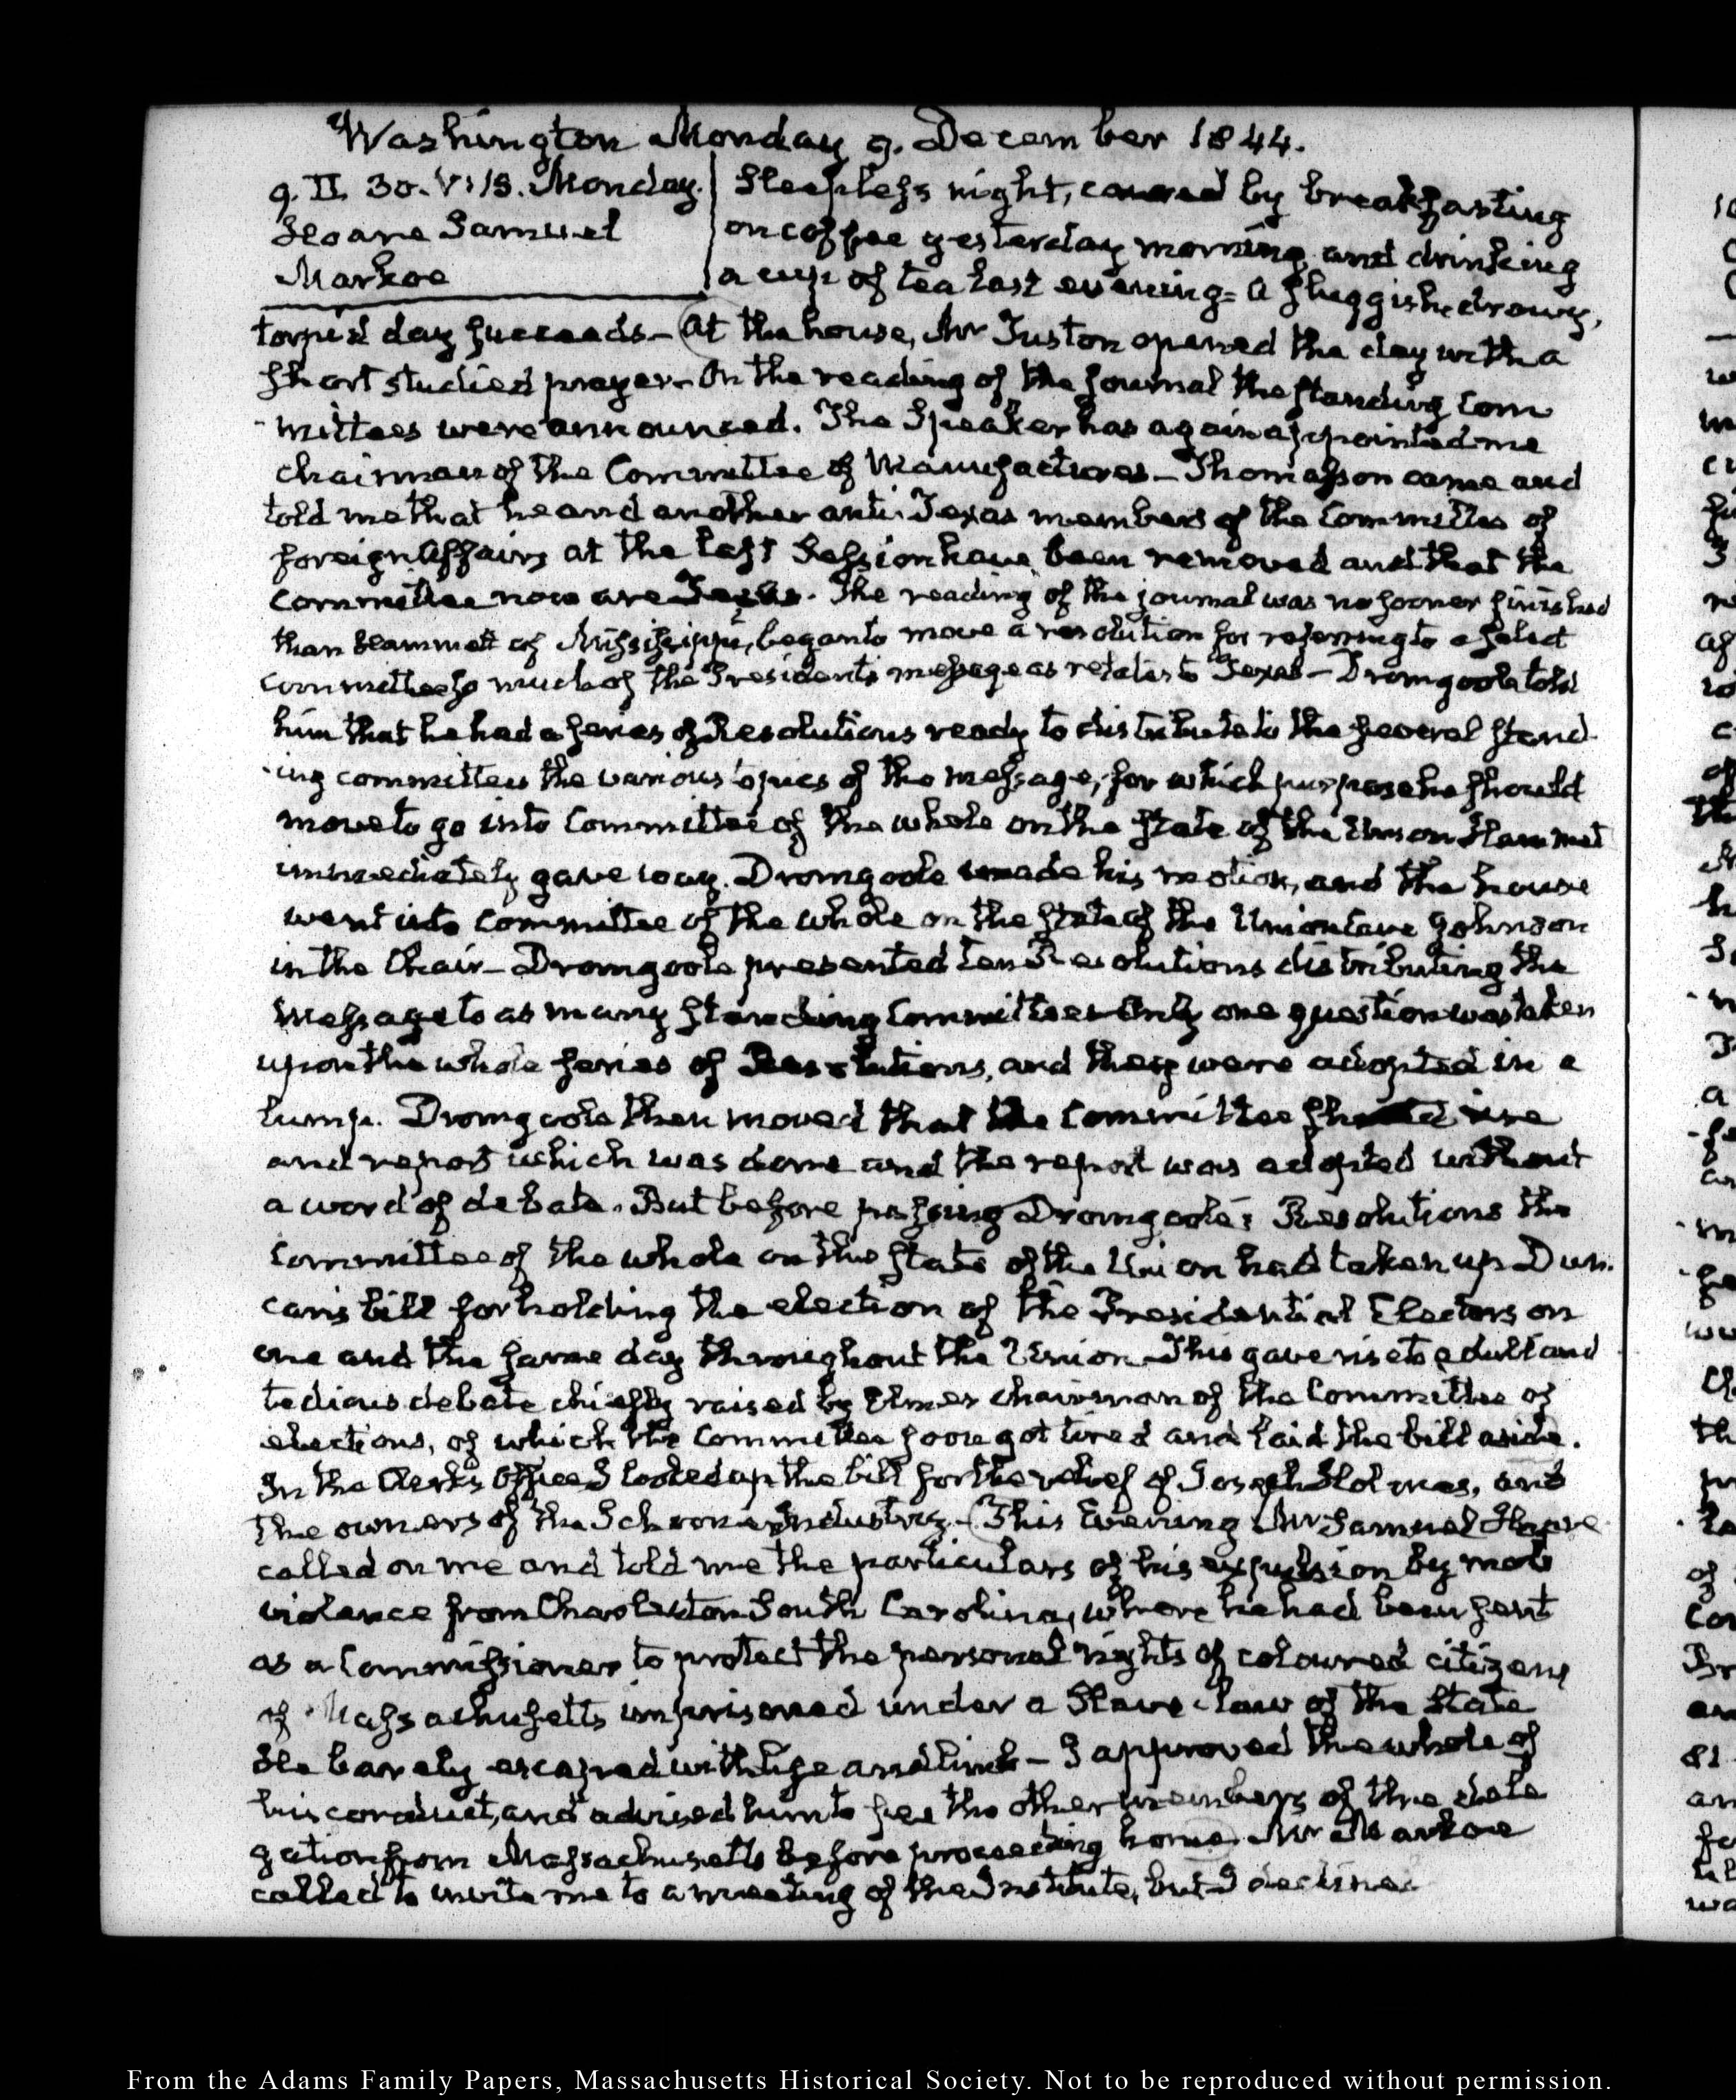 Washington Monday 9. December 1844.
9. II. 30. V:15. Monday.
Hoare Samuel
Markoe
Sleepless night, caused by breakfasting
on coffee yesterday morning, and drinking
a cup of tea last evening = a sluggish drowsy,
torpid day succeeds — At the house, Mr Tuston opened the day with a
short studied prayer. On the reading of the journal the standing Com
mittees were announced. The Speaker has again appointed me
chairman of the Committee of Manufactures — Thomasson came and
told me that he and another anti-Texas members of the Committee of
foreign Affairs at the last Session have been removed and that the
committee now are . The reading of the journal was no sooner finished
than Hammett of Mississippi, began to move a resolution for referring to a select
committee so much of the President's message as relates to Texas — Dromgoole told
him that he had a series of Resolutions ready to distribute to the several stand-
-ing committees the various topics of the message, for which purpose he should
move to go into Committee of the whole on the state of the Union Hammet
immediately gave way. Dromgoole made his motion, and the house
went into Committee of the whole on the state of the Union Cave Johnson
in the Chair — Dromgoole presented ten Resolutions distributing the
message to as many standing Committees Only one question was taken
upon the whole series of Resolutions, and they were adopted in a
lump. Dromgoole then moved that the Committee rise
and report which was done and the report was adopted without
a word of debate. But before passing Dromgoole's Resolutions the
Committee of the whole on the state of the Union had taken up Dun-
can's bill for holding the election of the Presidential Electors on
one and the same day throughout the Union. This gave rise to a dull and
tedious debate chiefly raised by Elmer chairman of the Committee of
elections, of which the Committee soon got tired and laid the bill aside.
In the Clerk's Office I looked up the bill for the relief of Joseph Holmes, and
the owners of the Schooner Industry. This Evening Mr Samuel Hoare
called on me and told me the particulars of his expulsion by mob
violence from Charleston South Carolina, where he had been sent
as a Commissioner to protect the personal rights of coloured citizens
of Massachusetts imprisoned under a Slave-law of the State
He barely escaped with life and limb — I approved the whole of
his conduct, and advised him to see the other members of the dele
gation from Massachusetts before proceeding home. Mr Markoe
called to invite me to a meeting of the Institute, but I declined
From the Adams Family Papers, Massachusetts Historical Society. Not to be reproduced without permission.